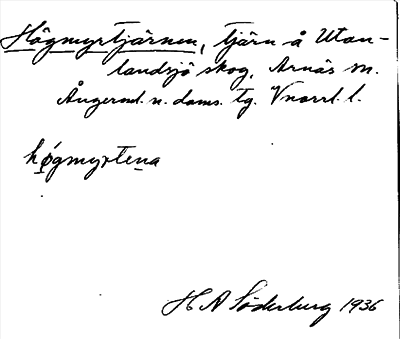 Högmyrtjärnen, tjärn å Utan-
landsjö skog, Arnäs sn.
Ångerml. n. doms. tg. Vnorrl. l.
hǿgmyrtena
H A Söderberg 1936